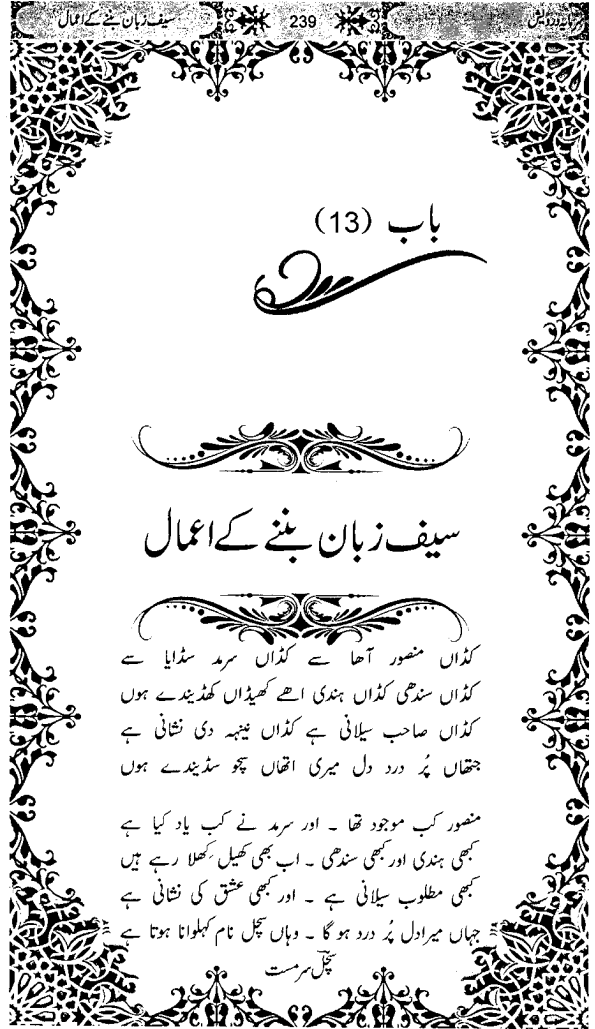 سیف زبان بننے کے اعمال 239 سرمایہ درویش
باب (13)
سیف زبان بننے کے اعمال
کڈاں منصور آھا سے کڈاں سرمد سڈایا سے
کڈاں سندھی کڈاں ہندی اھے کھیڈاں کھڈیندے ہوں
کڈاں صاحب سیلانی ہے کڈاں نینہہ دی نشانی ہے
جتھاں پُر درد دل میری اتھاں سچو سڈیندے ہوں
منصور کب موجود تھا ۔ اور سرمد نے کب یاد کیا ہے
کبھی ہندی اور کبھی سندھی ۔ اب بھی کھیل کھلا رہے ہیں
کبھی مطلوب سیلانی ہے ۔ اور کبھی عشق کی نشانی ہے
جہاں میرا دل پُر درد ہو گا ۔ وہاں سچل نام کہلوانا ہوتا ہے
سچل سرمست